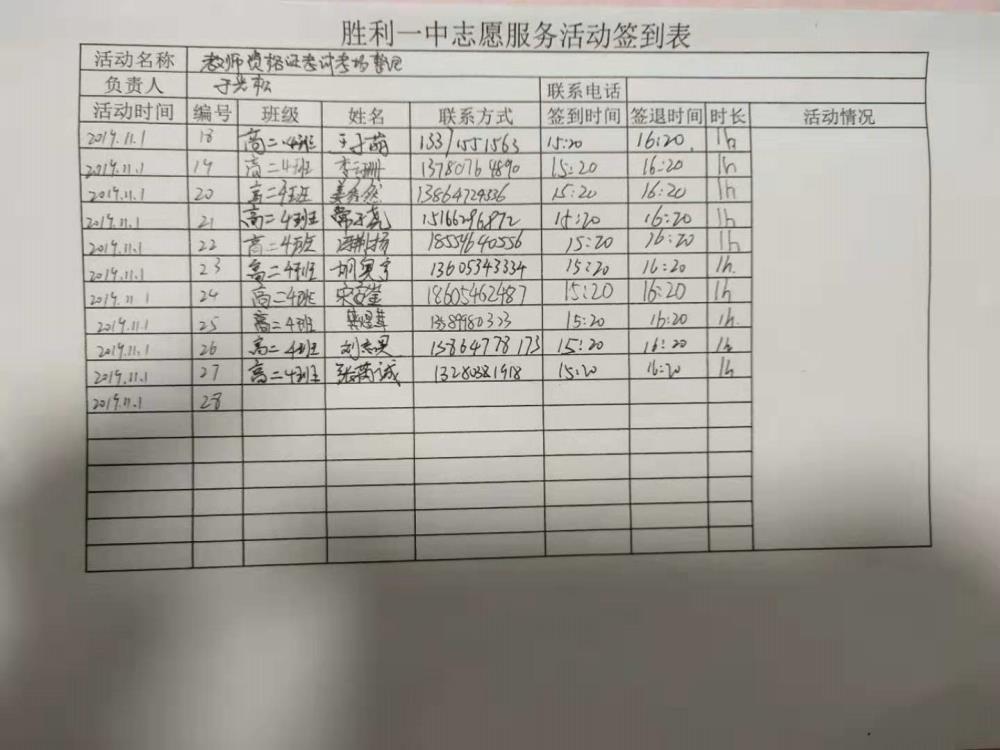 胜利一中志愿服务活动签到表
活动名称 教师资格证考试考场整理
负责人 联系电话
活动时间 编号 班级 姓名 联系方式 签到时间 签退时间 时长 活动情况
2019.11.1 18 高二4班 王子萌 15:20 16:20 1h
2019.11.1 19 高二4班 13780764890 15:20 16:20 1h
2019.11.1 20 高二4班 13864724336 15:20 16:20 1h
2019.11.1 21 高二4班 15166296872 15:20 16:20 1h
2019.11.1 22 高二4班 18554640556 15:20 16:20 1h
2019.11.1 23 高二4班 13605343334 15:20 16:20 1h.
2019.11.1 24 高二4班 18605462487 15:20 16:20 1h
2019.11.1 25 高二4班 15:20 16:20 1h.
2019.11.1 26 高二4班 13864778173 15:20 16:20 1h
2019.11.1 27 高二4班 13280381918 15:20 16:20 1h
2019.11.1 28